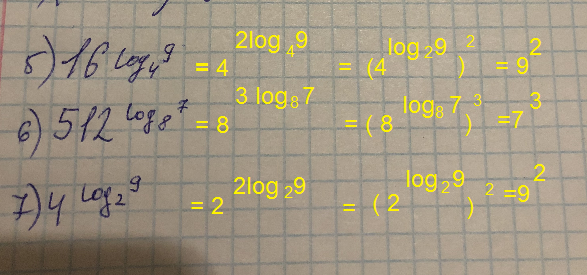 5) 16^{log_4 9} = 4^{2log_4 9} = (4^{log_2 9})^2 = 9^2
6) 512^{log_8 7} = 8^{3 log_8 7} = (8^{log_8 7})^3 = 7^3
7) 4^{log_2 9} = 2^{2log_2 9} = (2^{log_2 9})^2 = 9^2